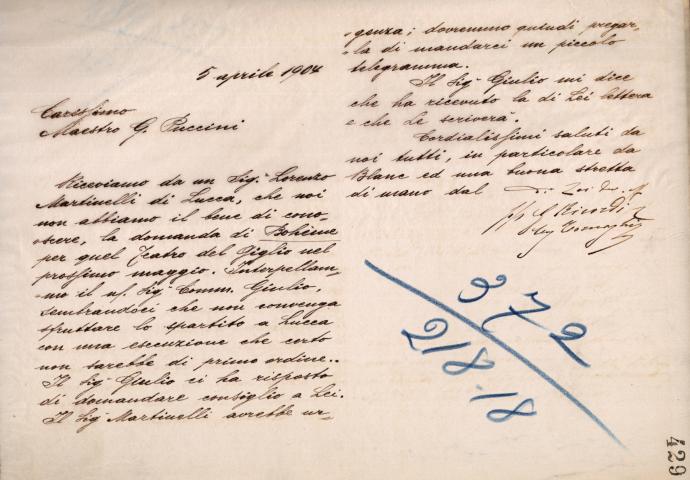 5 aprile 1904
Carissimo
Maestro G. Puccini
Riceviamo da un Sig. Lorenzo
Martinelli di Lucca, che noi
non abbiamo il bene di cono-
scere, la domanda di Bohème
per quel Teatro del Giglio nel
prossimo maggio. Interpellam-
mo il ns/ Sig. Comm. Giulio,
sembrandoci che non convenga
sfruttare lo spartito a Lucca
con una esecuzione che certo
non sarebbe di primo ordine..
Il Sigr Giulio ci ha risposto
di domandare consiglio a Lei.
Il Sigr Martinelli avrebbe ur-
-genza; dovremmo quindi pregar-
-la di mandarci un piccolo
telegramma.
Il Sigr Giulio mi dice
che ha ricevuto la di Lei lettera
e che Le scriverà.
Cordialissimi saluti da
noi tutti, in particolare da
Blanc ed una buona stretta
di mano dal
G. Ricordi
372
218.18
429